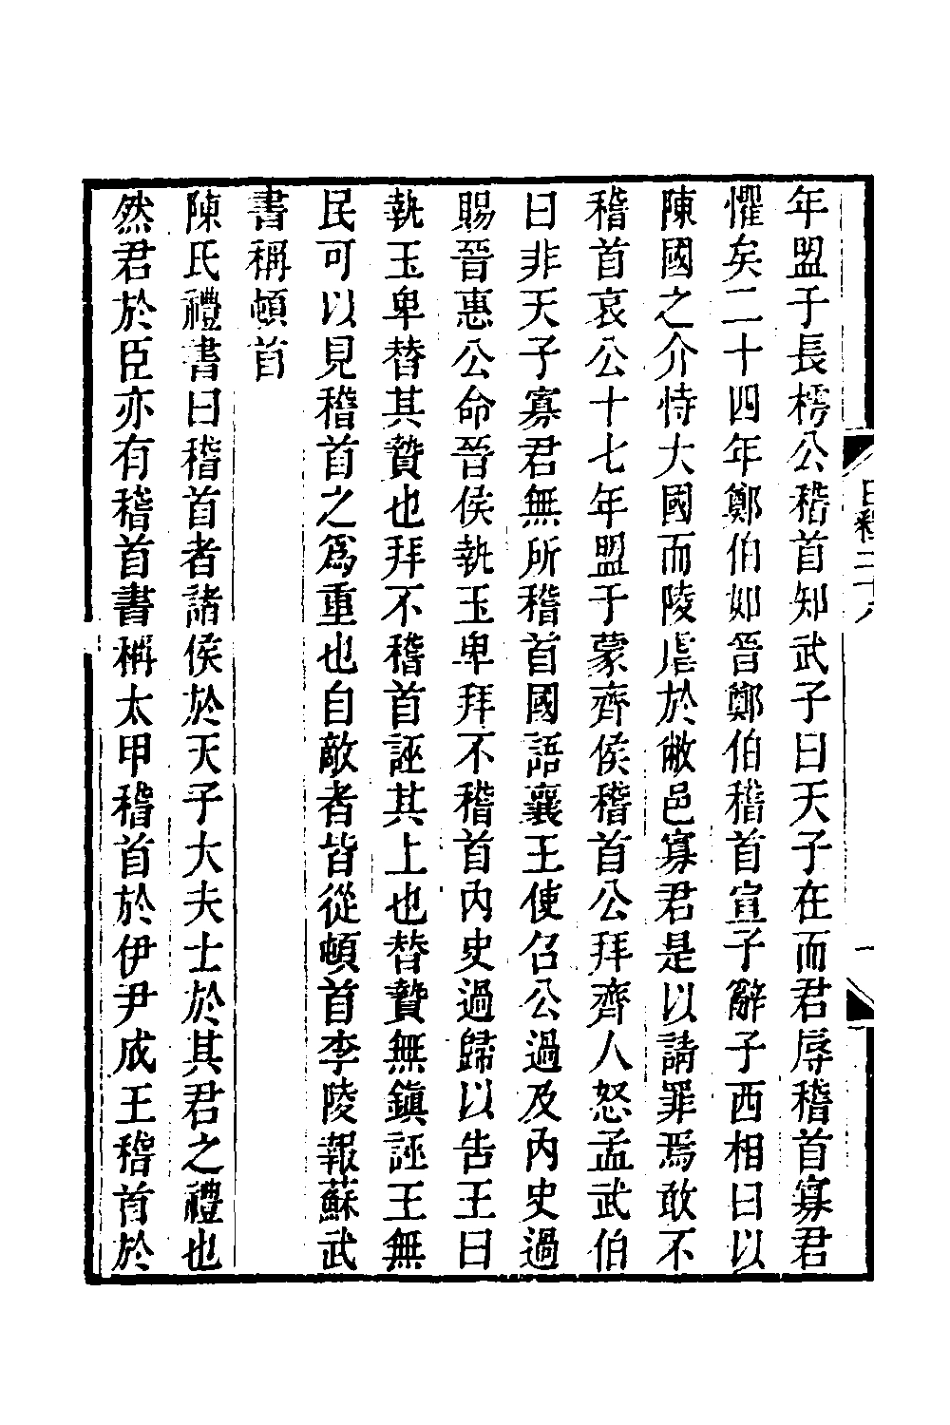 年盟于長樗公稽首知武子曰天子在而君辱稽首寡君
懼矣二十四年鄭伯如晉鄭伯稽首宣子辭子西相曰以
陳國之介恃大國而陵虐於敝邑寡君是以請罪焉敢不
稽首哀公十七年盟于蒙齊侯稽首公拜齊人怒孟武伯
曰非天子寡君無所稽首國語襄王使召公過及內史過
賜晉惠公命晉侯執玉卑拜不稽首內史過歸以告王曰
執玉卑替其贄也拜不稽首誣其上也替贄無鎮誣王無
民可以見稽首之爲重也自敵者皆從頓首李陵報蘇武
書稱頓首
陳氏禮書曰稽首者諸侯於天子大夫士於其君之禮也
然君於臣亦有稽首書稱太甲稽首於伊尹成王稽首於